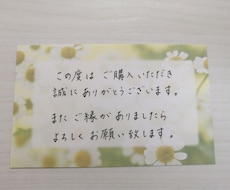 この度は ご購入いただき
誠に ありがとうございます。
また ご縁が ありましたら
よろしく お願い致します。